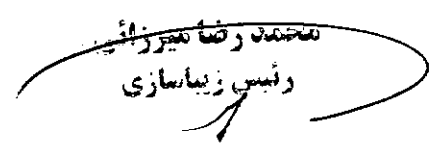 محمد رضا میرزائی
رئیس زیباسازی